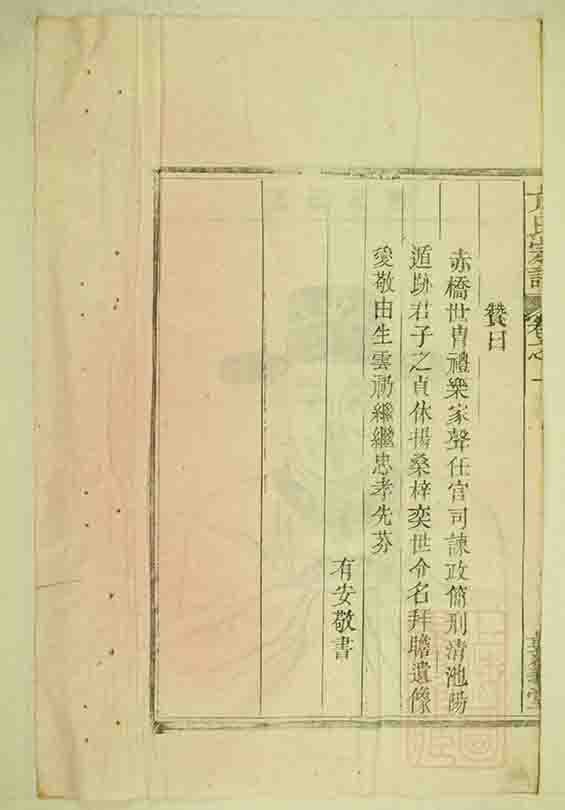 氏家譜
卷之一
贊曰
赤橋世胄禮樂家聲任官司諫政簡刑清池陽
遁跡君子之貞休揚桑梓奕世令名拜瞻遺像
愛敬由生雲礽繼繼忠孝先芬
有安敬書